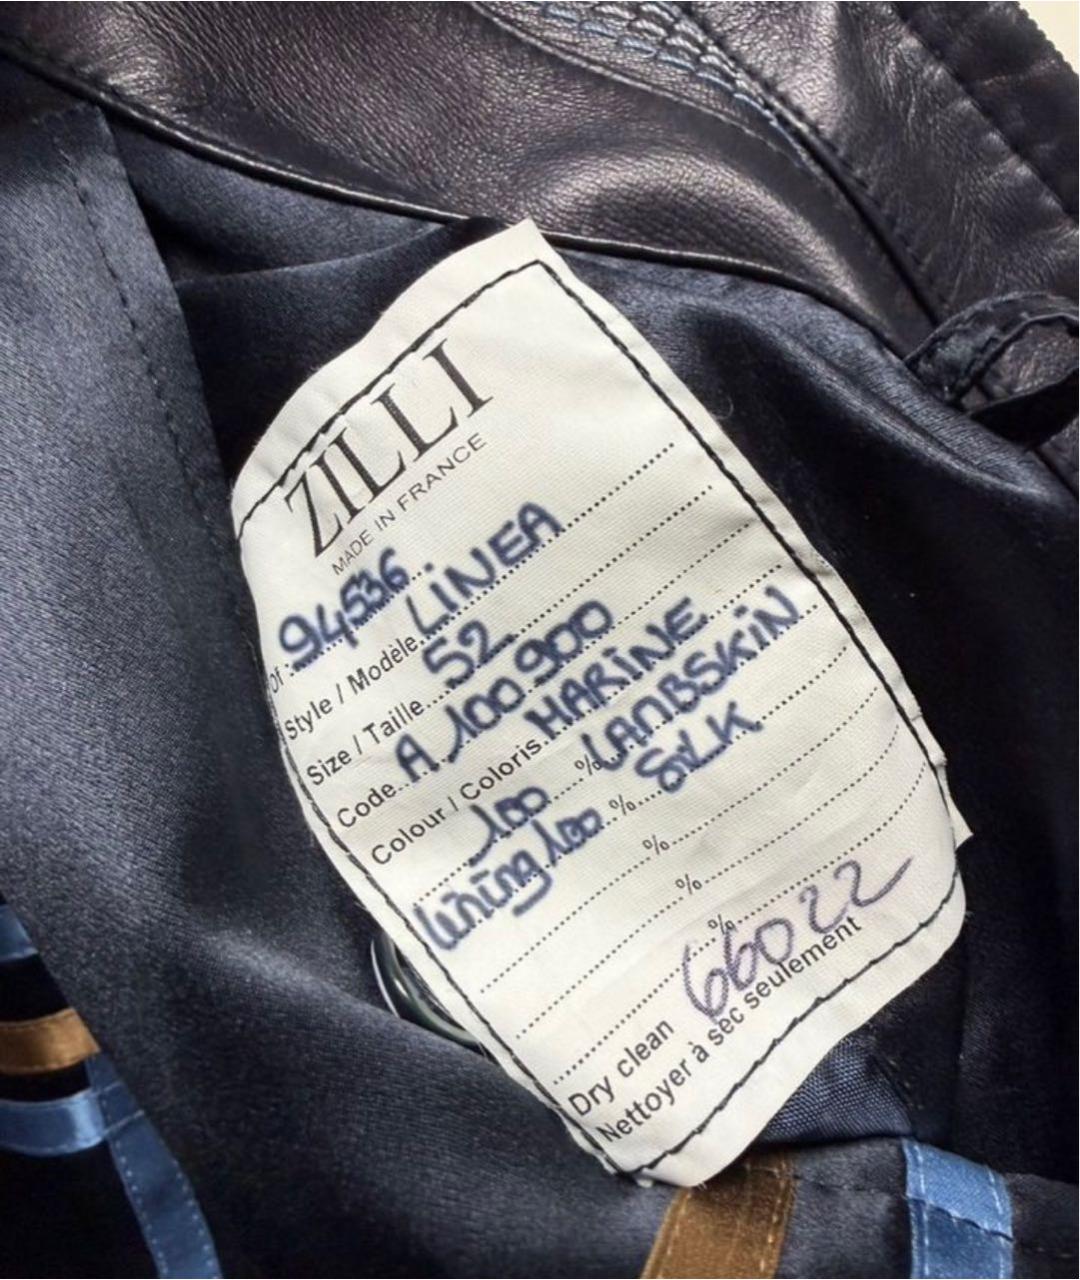 ZILLI
MADE IN FRANCE
Of 94536
Style / Modèle LINEA
Size / Taille 52
Code A 100 900
Colour / Coloris MARINE
100 % LAMBSKIN
lining 100 % SILK
%
%
%
66022
Dry clean
Nettoyer à sec seulement